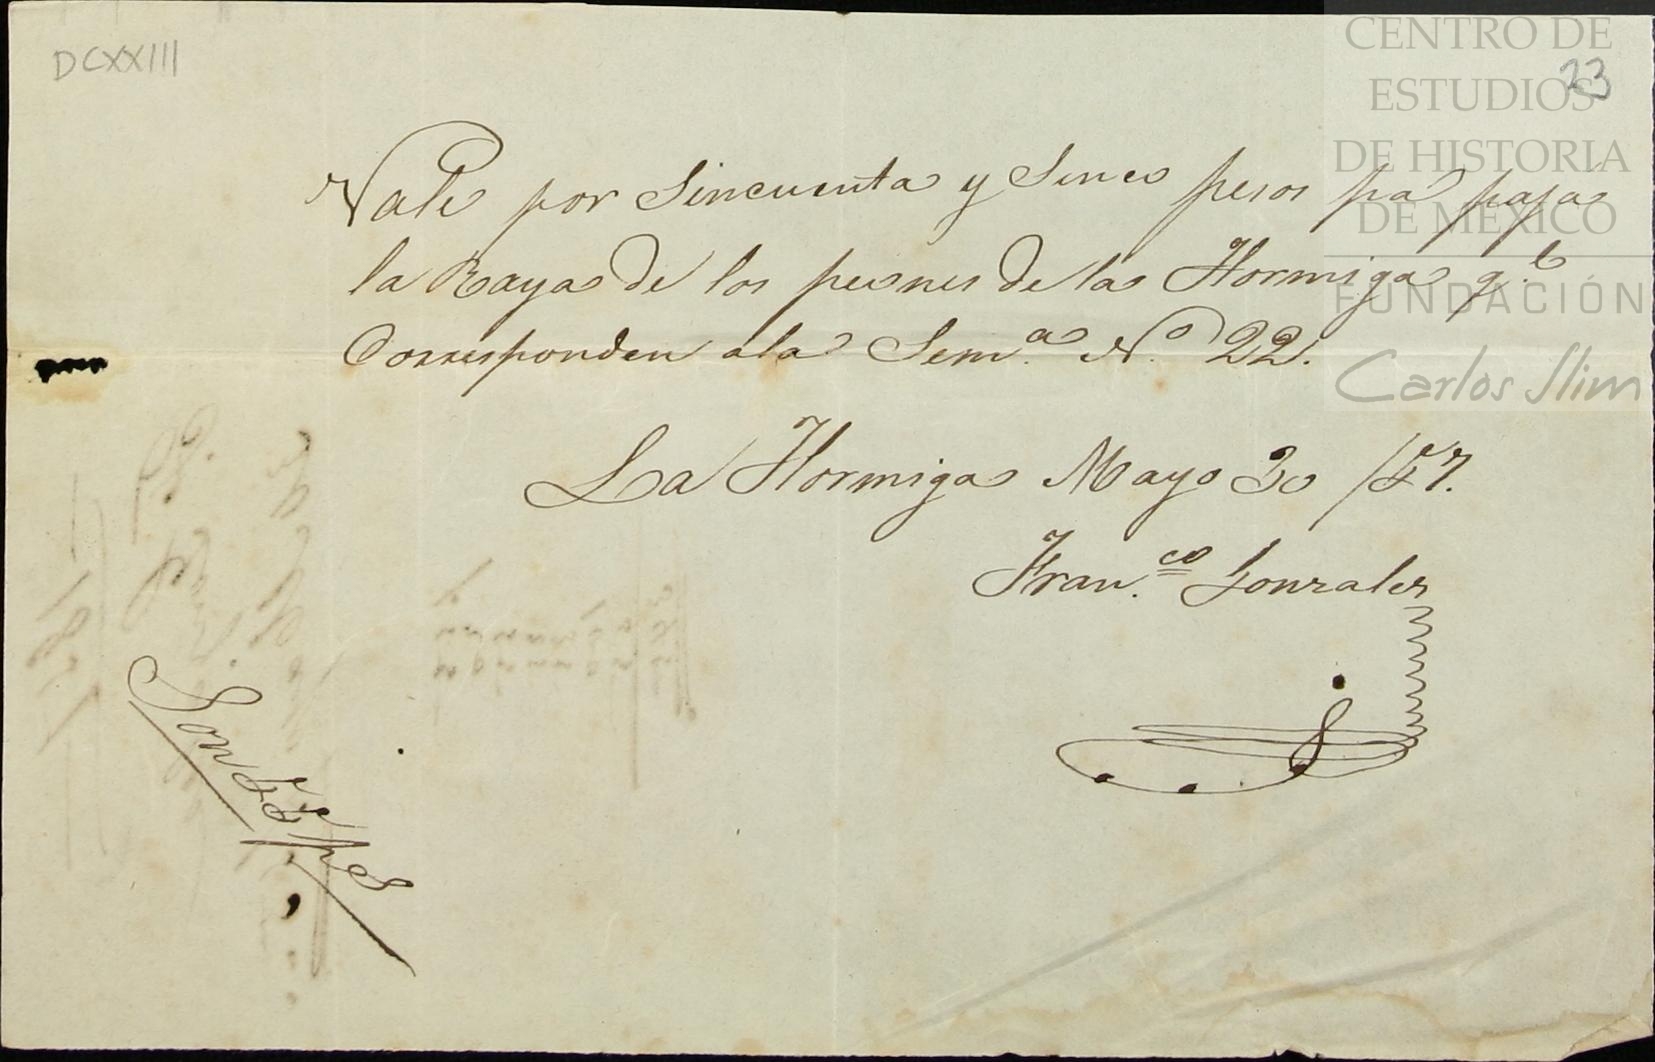 DCXXIII
23
CENTRO DE
ESTUDIOS
DE HISTORIA
DE MÉXICO
FUNDACIÓN
Carlos Slim
Vale por Sincuenta y Sinco pesos pa pagar
la Raya de los peones de la Hormiga q.e
Corresponden ala Sem.a No. 22.
La Hormiga Mayo 30 /57.
Fran.co Gonzales
Son 55 ps